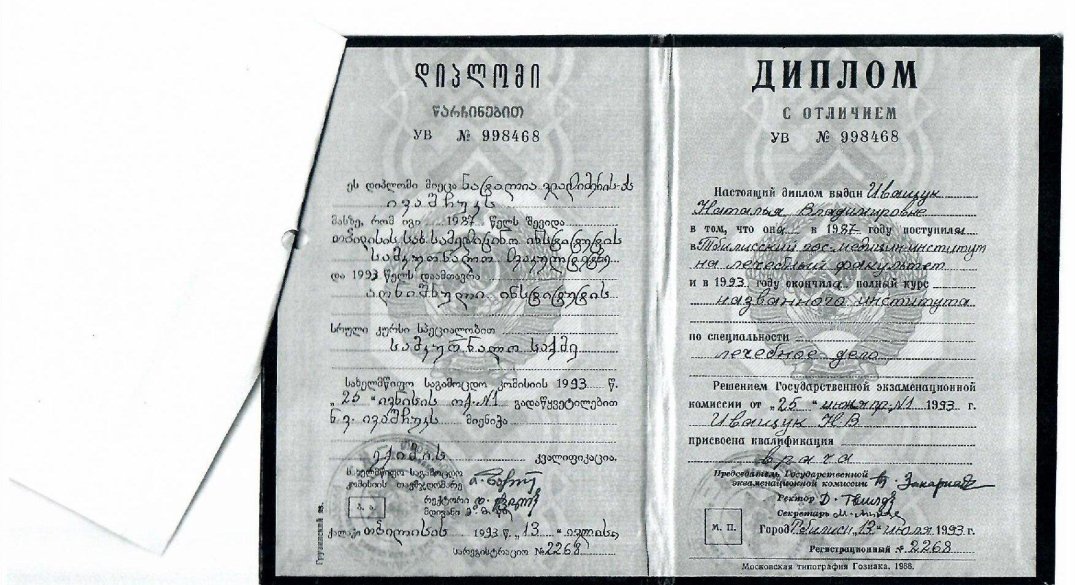 დიპლომი
წარჩინებით
УВ № 998468
ეს დიპლომი მიეცა ნატალია ვლადიმერის ას
ივაშჩუკს
მასზე, რომ იგი 1987 წელს შევიდა
თბილისის სახ. სამედიცინო ინსტიტუტის
სამკურნალო ფაკულტეტზე
და 1993 წელს დაამთავრა
აღნიშნული ინსტიტუტის
სრული კურსი სპეციალობით
სამკურნალო საქმე
სახელმწიფო საგამოცდო კომისიის 1993 წ.
„25“ ივნისის ოქ. №1 გადაწყვეტილებით
ნ.ვ. ივაშჩუკს მიენიჭა
ექიმის კვალიფიკაცია.
სახელმწიფო საგამოცდო
კომისიის თავმჯდომარე
რექტორი
მდივანი
ბ. ა.
ქალაქი თბილისის 1993 წ. „13“ ივლისი
სარეგისტრაციო № 2268
Грузинский яз.
ДИПЛОМ
С ОТЛИЧИЕМ
УВ № 998468
Настоящий диплом выдан Иващук
Наталья Владимировне
в том, что она в 1987 году поступила
в Тбилисский гос. медицин. институт
на лечебный факультет
и в 1993 году окончила полный курс
названного института
по специальности
лечебное дело
Решением Государственной экзаменационной
комиссии от „25“ июня пр. №1 1993 г.
Иващук Н.В
присвоена квалификация
врача
Председатель Государственной
экзаменационной комиссии
Ректор
Секретарь
М. П.
Город Тбилиси „13“ июля 1993 г.
Регистрационный № 2268
Московская типография Гознака. 1988.